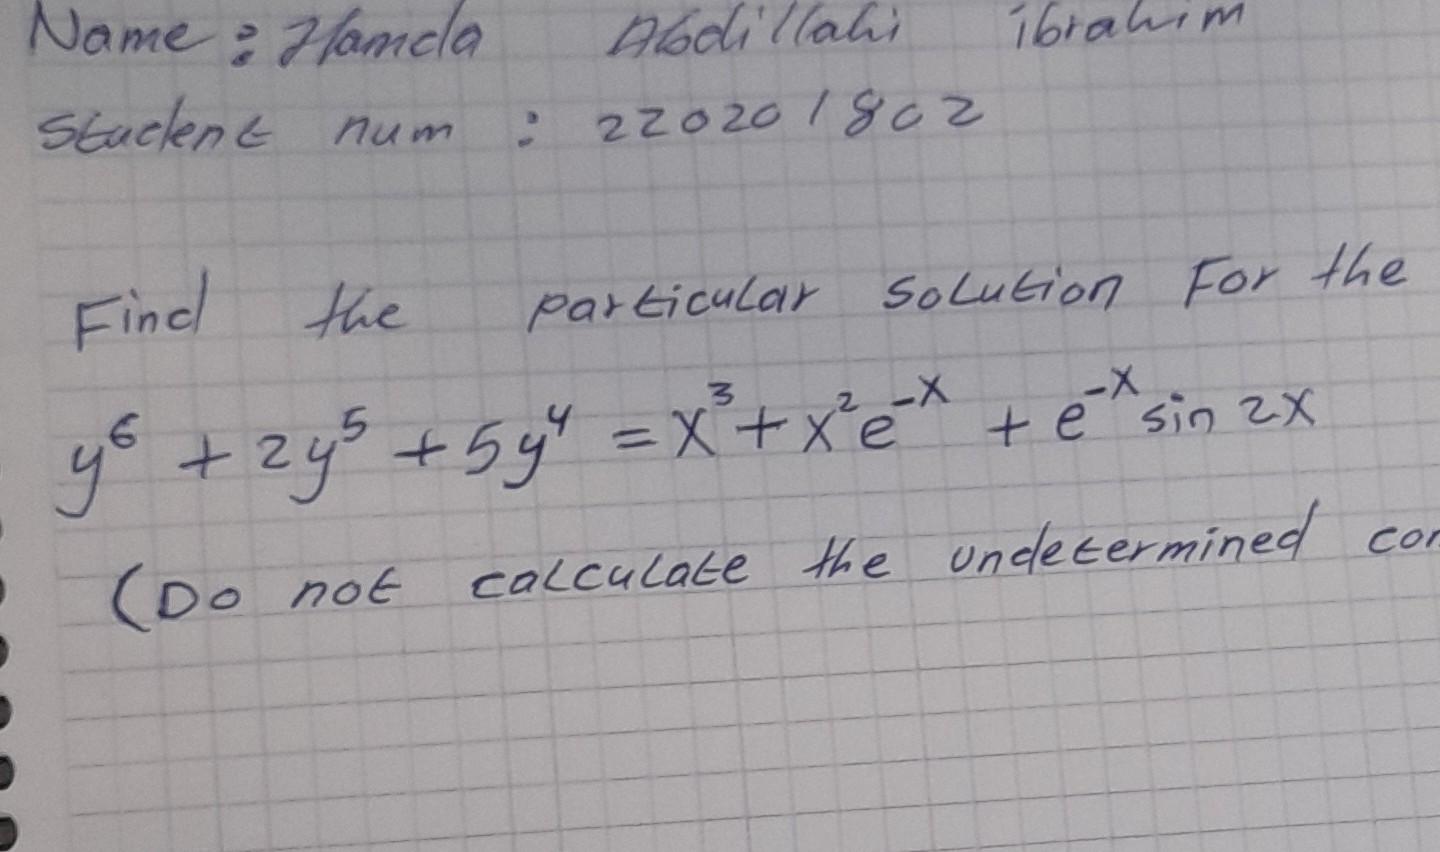 Name: Hamda Abdillahi ibrahim
Student num : 220201802
Find the particular solution For the
y⁶ + 2y⁵ + 5y⁴ = x³ + x²e⁻ˣ + e⁻ˣ sin 2x
(Do not calculate the undetermined